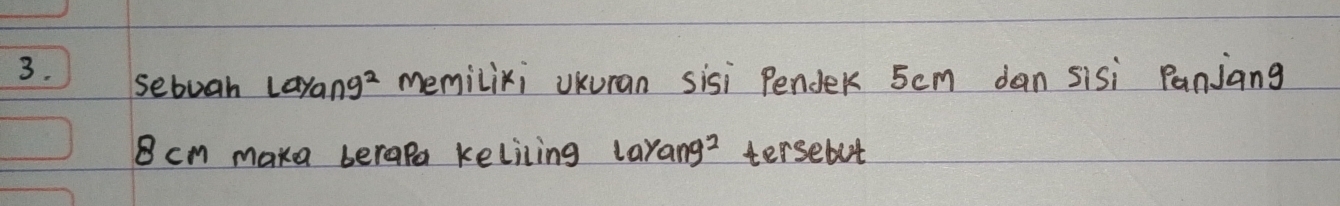 3. Sebuah Layang² memiliki ukuran sisi Pendek 5cm dan sisi Panjang
8 cm maka berapa keliling layang² tersebut